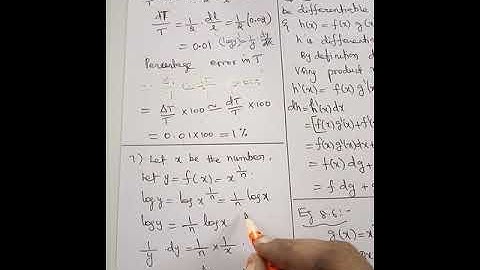 ΔT/T = 1/2 · dl/l = 1/2 (0.02)
= 0.01
Percentage error in T
= ΔT/T ×100 ≃ dT/T ×100
= 0.01×100 = 1%
7) Let x be the number.
Let y = f(x) = x^(1/n)
log y = log x^(1/n) = 1/n log x
log y = 1/n log x
1/y dy = 1/n × 1/x
be differentiable
h(x) = f(x) g(x)
h is differenti
By definition
Using product
h'(x) = f(x) g'(x)
dh = h'(x) dx
= [f(x) g'(x) + f'
= f(x) g'(x) dx +
= f dg +
Eg 8.6:-
g(x) =